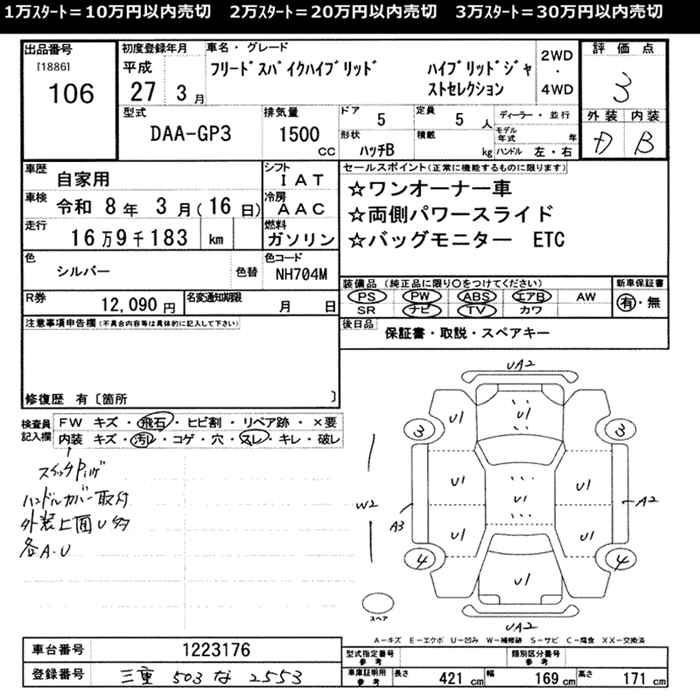 1万スタート＝10万円以内売切　2万スタート＝20万円以内売切　3万スタート＝30万円以内売切
出品番号
[1886]
106
初度登録年月
平成
27 3月
車名・グレード
フリードスパイクハイブリッド
ハイブリッドジャ
ストセレクション
2WD
・
4WD
評価点
3
外装 内装
D B
型式
DAA-GP3
排気量
1500
CC
ドア
5
形状
ハッチB
定員
5 人
積載
kg
ディーラー・並行
モデル
年式 年
ハンドル 左・右
車歴
自家用
シフト
IAT
車検
令和 8年 3月(16日)
冷房
AAC
走行
16万9千183 km
燃料
ガソリン
色
シルバー
色替
色コード
NH704M
R券
12,090円
名変通知期限
月 日
セールスポイント(正常に機能するものに限ります)
☆ワンオーナー車
☆両側パワースライド
☆バッグモニター ETC
装備品(純正品に限り○をつけてください)
PS PW ABS エアB AW
SR ナビ TV カワ
新車保証書
有・無
後日品
保証書・取説・スペアキー
注意事項申告欄(不具合内容等は具体的に記入して下さい)
修復歴 有〔箇所 〕
検査員
記入欄
FW キズ・飛石・ヒビ割・リペア跡・×要
内装 キズ・汚れ・コゲ・穴・スレ・キレ・破レ
ハンドルカバー取付
外装上面U多
各A・U
UA2
U1
U1
U1
3
3
U1
U1
U1
W2
A3
A2
U1
U1
4
4
U1
UA2
スペア
A－キズ E－エクボ U－凹み W－補修跡 S－サビ C－腐食 XX－交換済
車台番号
1223176
登録番号
三重 503 な 2553
型式指定番号
参考
類別区分番号
参考
車庫証明用
参考
長さ 421 cm
幅 169 cm
高さ 171 cm